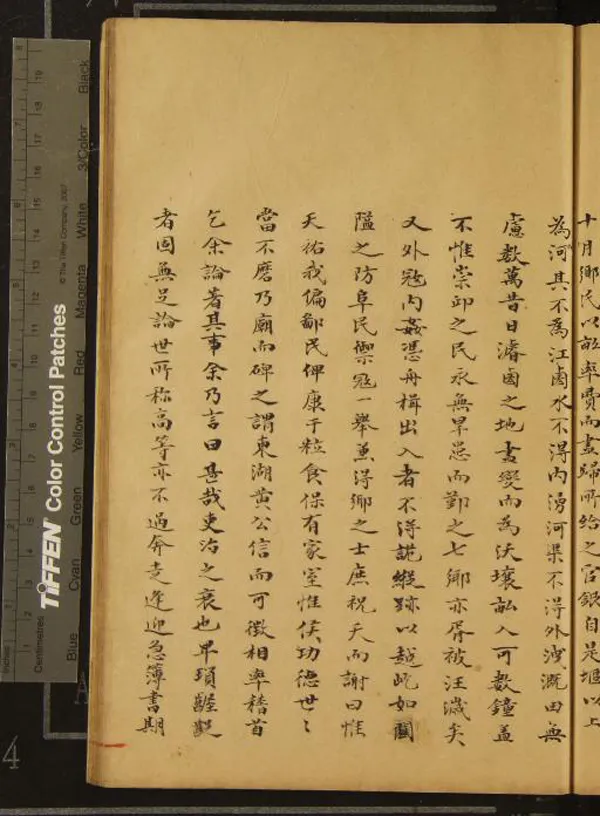 十月鄉民以畝率費而盡歸所給之官銀自是堰以上
為河其不為江鹵水不得內湧河渠不得外洩溉田無
慮数萬昔日瀦鹵之地盡變而為沃壤畝入可数鐘盖
不惟崇邱之民永無旱忌而鄞之七鄉亦胥被汪濊矣
又外寇內姦憑舟楫出入者不得詭縱跡以越屹如關
隘之防阜民禦寇一舉兼得鄉之士庶祝天而謝曰惟
天佑我偏鄙民俾康于粒食保有家室惟侯功德世〻
當不磨乃廟而碑之謂東湖黄公信而可徵相率稽首
乞余論著其事余乃言曰甚哉吏治之衰也卑瑣齷齪
者固無足論世所称高等亦不過奔走逢迎急簿書期
Inches
Centimetres
TIFFEN Color Control Patches
© The Tiffen Company, 2007
Blue
Cyan
Green
Yellow
Red
Magenta
White
3/Color
Black
4